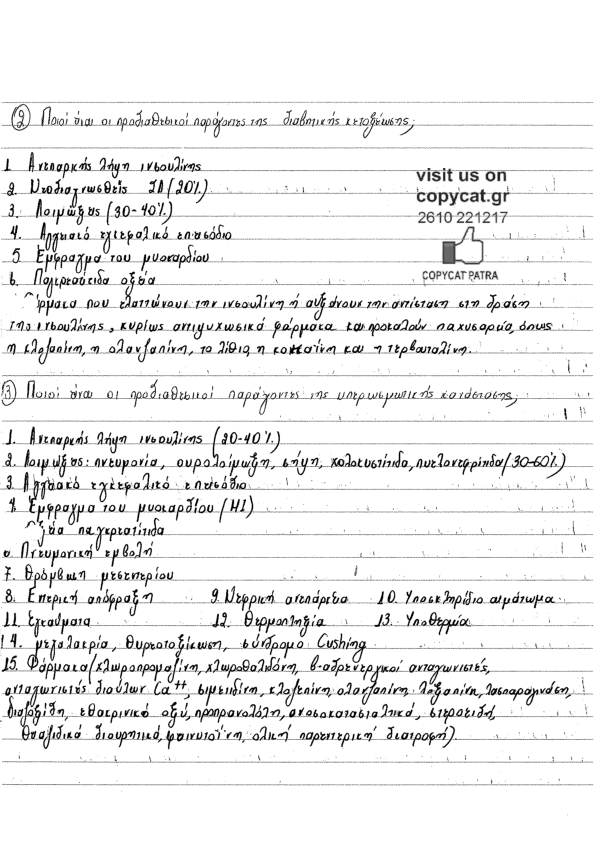 ② Ποιοί είναι οι προδιαθεσικοί παράγοντες της διαβητικής κετοξέωσης;
1. Ανεπαρκής λήψη ινσουλίνης
2. Νεοδιαγνωσθείς ΣΔ (20%)
3. Λοιμώξεις (30-40%)
4. Αγγειακό εγκεφαλικό επεισόδιο
5 Έμφραγμα του μυοκαρδίου
6. Παγκρεατίτιδα οξεία
άρμακα που ελαττώνουν την ινσουλίνη ή αυξάνουν την αντίσταση στη δράση
της ινσουλίνης, κυρίως αντιψυχωσικά φάρμακα που προκαλούν παχυσαρκία, όπως
η κλοζαπίνη, η ολανζαπίνη, το λίθιο, η κοκαΐνη και η τερβουταλίνη.
visit us on
copycat.gr
2610 221217
COPYCAT PATRA
③ Ποιοί είναι οι προδιαθεσικοί παράγοντες της υπερωσμωτικής κατάστασης;
1. Ανεπαρκής λήψη ινσουλίνης (20-40%)
2. Λοιμώξεις: πνευμονία, ουρολοίμωξη, σήψη, χολοκυστίτιδα, πυελονεφρίτιδα (30-60%)
3. Αγγειακό εγκεφαλικό επεισόδιο
4. Έμφραγμα του μυοκαρδίου (ΜΙ)
ξεία παγκρεατίτιδα
6. Πνευμονική εμβολή
7. Θρόμβωση μεσεντερίου
8. Εντερική απόφραξη 9. Νεφρική ανεπάρκεια 10. Υποσκληρίδιο αιμάτωμα
11. Εγκαύματα 12. Θερμοπληξία 13. Υποθερμία
14. μεγαλακρία, θυρεοτοξίκωση, σύνδρομο Cushing
15. Φάρμακα (χλωροπρομαζίνη, χλωροθαλιδόνη, β-αδρενεργικοί ανταγωνιστές,
ανταγωνιστές διαύλων Ca⁺⁺, σιμετιδίνη, κλοζαπίνη, ολανζαπίνη, λοξαπίνη, λασπαραγινάση,
διαζοξίδη, εθακρινικό οξύ, προπρανολόλη, ανοσοκατασταλτικά, στεροειδή,
θειαζιδικά διουρητικά, φαινυτοΐνη, ολική παρεντερική διατροφή).